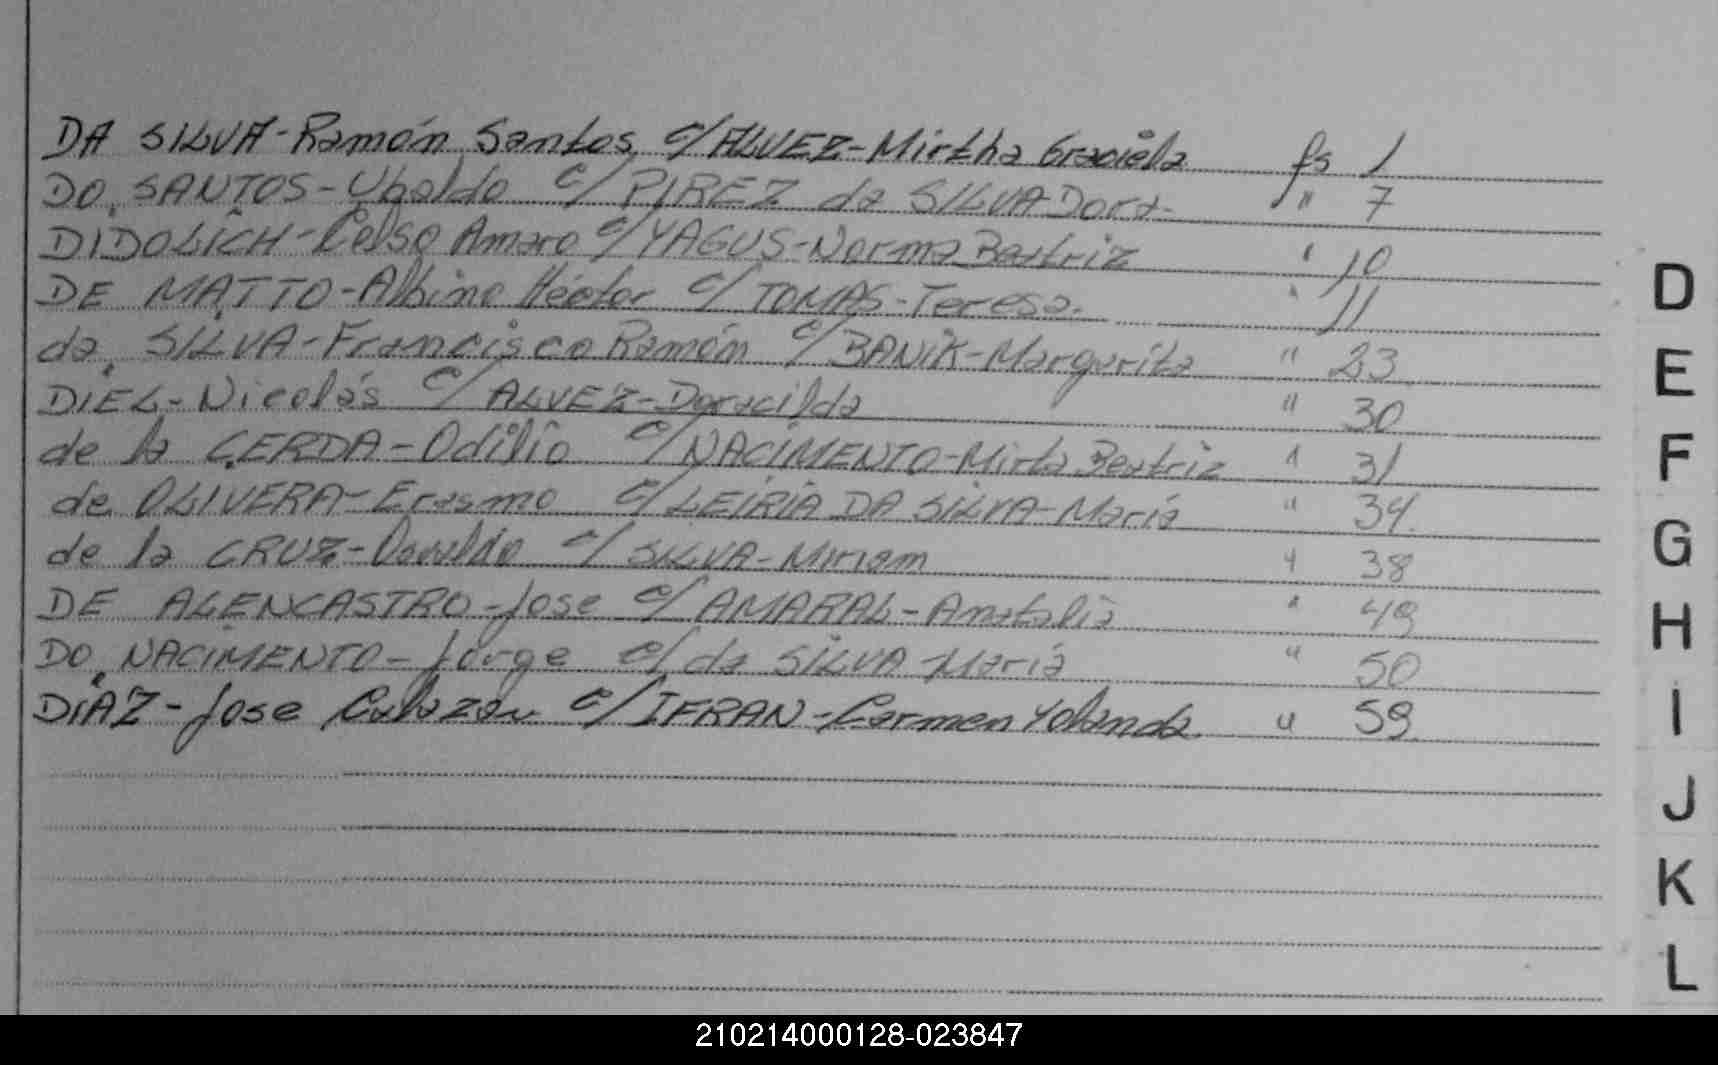 DA SILVA-Ramón Santos c/ ALVEZ-Mirtha Graciela fs 1
DO SANTOS-Ubaldo c/ PIREZ da SILVA Dora- " 7
DIDOLICH-Celso Amaro c/ YAGUS-Norma Beatriz " 10
DE MATTO-Albino Héctor c/ TOMAS-Teresa. " 11
da SILVA-Francisco Ramón c/ BANIK-Margarita " 23
DIEL-Nicolás c/ ALVEZ-Doracilda " 30
de la CERDA-Odilio c/ NACIMENTO-Mirta Beatriz " 31
de OLIVERA-Erasmo c/ LEIRIA DA SILVA-María " 34
de la CRUZ-Osvaldo c/ SILVA-Miriam " 38
DE ALENCASTRO-Jose c/ AMARAL-Anatalia " 49
DO NACIMENTO-Jorge c/ da SILVA-María " 50
DIAZ-Jose c/ IFRAN-Carmen Yolanda " 59
D
E
F
G
H
I
J
K
L
210214000128-023847